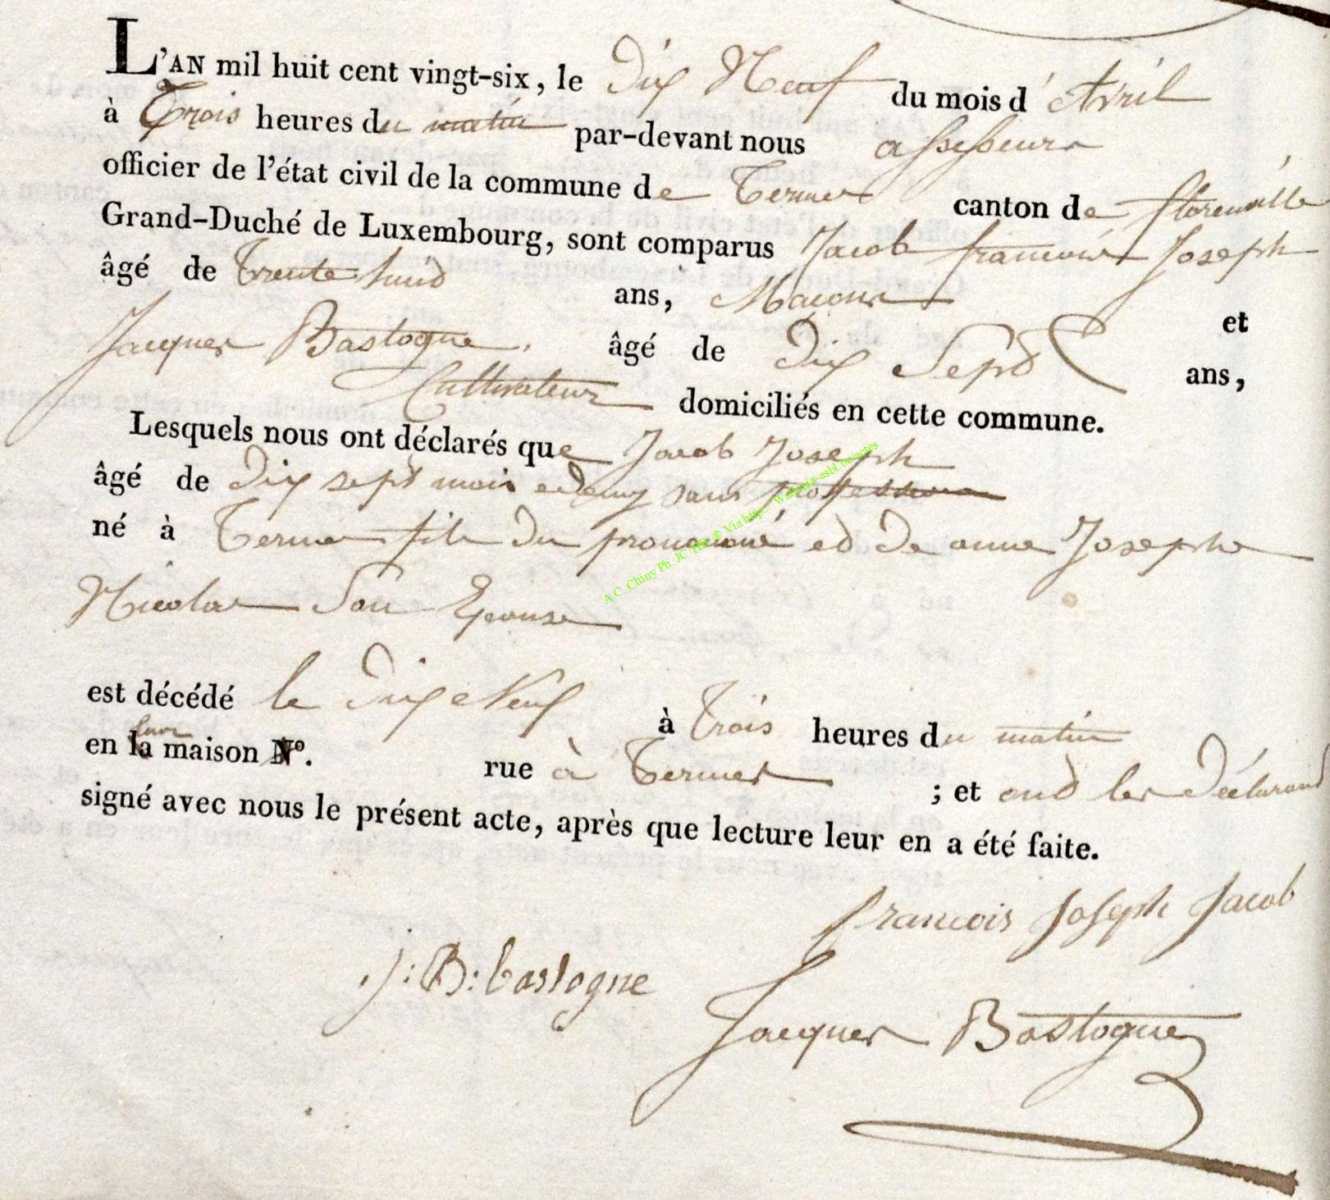 L'AN mil huit cent vingt-six, le Dix Neuf du mois d'Avril
à Trois heures du matin par-devant nous assesseur
officier de l'état civil de la commune de Termes canton de florenville
Grand-Duché de Luxembourg, sont comparus Jacob francois Joseph
âgé de Trente huid ans, Macons et
Jacques Bastogne, âgé de Dix Sepd ans,
Cultivateur domiciliés en cette commune.
Lesquels nous ont déclarés que Jacob Joseph
âgé de Dix sept mois et demy sans profession
né à Termes fils du prononcé ed De anne Josephe
Nicolas Son Epouse
est décédé le Dix e Neuf à Trois heures du matin
en la leur maison N°. rue à Termes ; et ond les Déclarand
signé avec nous le présent acte, après que lecture leur en a été faite.
francois Joseph Jacob
J: B: bastogne
Jacques Bastogne